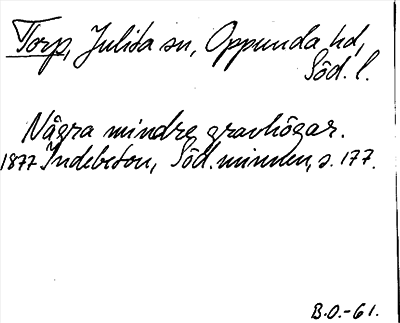 Torp, Julita sn, Oppunda hd,
Söd. l.
Några mindre gravhögar.
1877 Indebetou, Söd. minnen, s. 177.
B.O.-61.